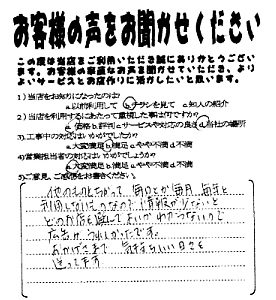 お客様の声をお聞かせください
この度は当店をご利用いただき誠にありがとうござい
ます。お客様の率直なお声を聞かせていただき、より
よいサービスとお店作りに活かしたいと思います。
1)当店をお知りになったのは?
a.以前利用して b.チラシを見て c.知人の紹介
2)当店を利用するにあたって重視した事は何ですか?
a.価格 b.評判 c.サービスや対応の良さ d.当社の場所
3)工事中の対応はいかがでしたか?
a.大変満足 b.満足 c.やや不満 d.不満
4)営業担当者の対応はいかがでしょうか
a.大変満足 b.満足 c.やや不満 d.不満
5)ご意見、ご感想をお書きください。
他のものとちがって、毎日とか毎月、毎年と
利用しないものなので、情報が少ないと
どのお店を選んでよいかわからないので
広告がうれしかったです。
おかげさまで 気持ちいい日々を
送ってます